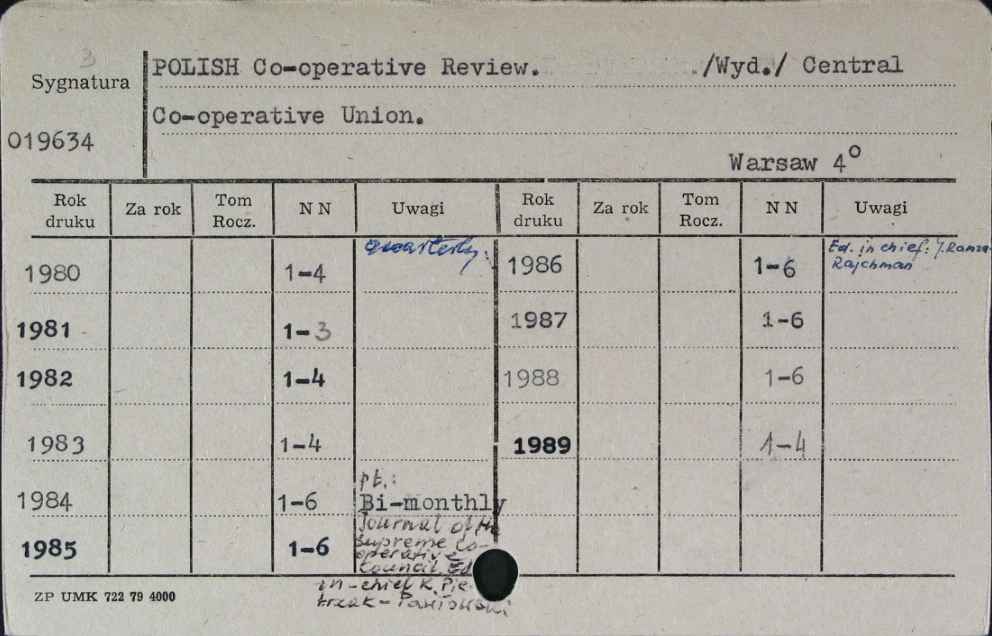 3
Sygnatura
019634
POLISH Co-operative Review. /Wyd./ Central
Co-operative Union.
Warsaw 4°
Rok druku Za rok Tom Rocz. N N Uwagi Rok druku Za rok Tom Rocz. N N Uwagi
1980 1-4 Quarterly. 1986 1-6 Ed. in chief: J. Rajchman
1981 1-3 1987 1-6
1982 1-4 1988 1-6
1983 1-4 1989 1-4
1984 1-6 pt.: Bi-monthly
1985 1-6 Journal of the
Supreme Co-
operative
Council Ed
in-chief K. Pie
ZP UMK 722 79 4000